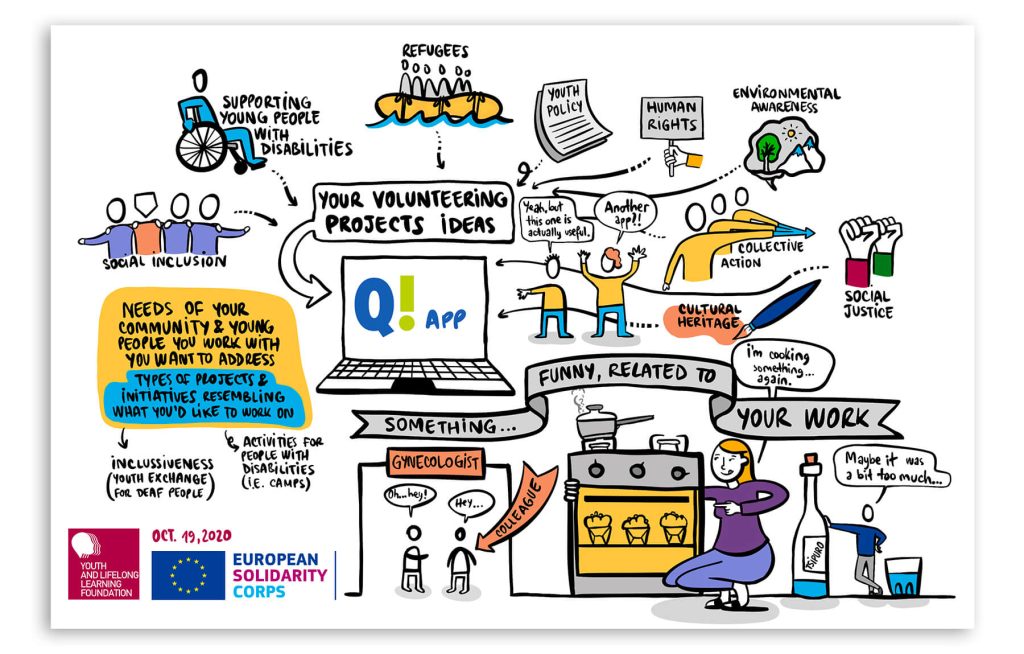 REFUGEES
SUPPORTING
YOUNG PEOPLE
WITH
DISABILITIES
YOUTH
POLICY
HUMAN
RIGHTS
ENVIRONMENTAL
AWARENESS
YOUR VOLUNTEERING
PROJECTS IDEAS
Yeah, but
this one is
actually useful.
Another
app?!
COLLECTIVE
ACTION
SOCIAL INCLUSION
SOCIAL
JUSTICE
CULTURAL
HERITAGE
Q! APP
NEEDS OF YOUR
COMMUNITY & YOUNG
PEOPLE YOU WORK WITH
YOU WANT TO ADDRESS
TYPES OF PROJECTS &
INITIATIVES, RESEMBLING
WHAT YOU'D LIKE TO WORK ON
INCLUSSIVENESS
(YOUTH EXCHANGE)
(FOR DEAF PEOPLE)
ACTIVITIES FOR
PEOPLE WITH
DISABILITIES
(I.E. CAMPS)
SOMETHING...
FUNNY, RELATED TO
YOUR WORK
i'm cooking
something...
again.
GYNECOLOGIST
Oh...hey!
Hey...
COLLEAGUE
Maybe it was
a bit too much...
TSIPURO
OCT. 19, 2020
YOUTH
AND LIFELONG
LEARNING
FOUNDATION
EUROPEAN
SOLIDARITY
CORPS